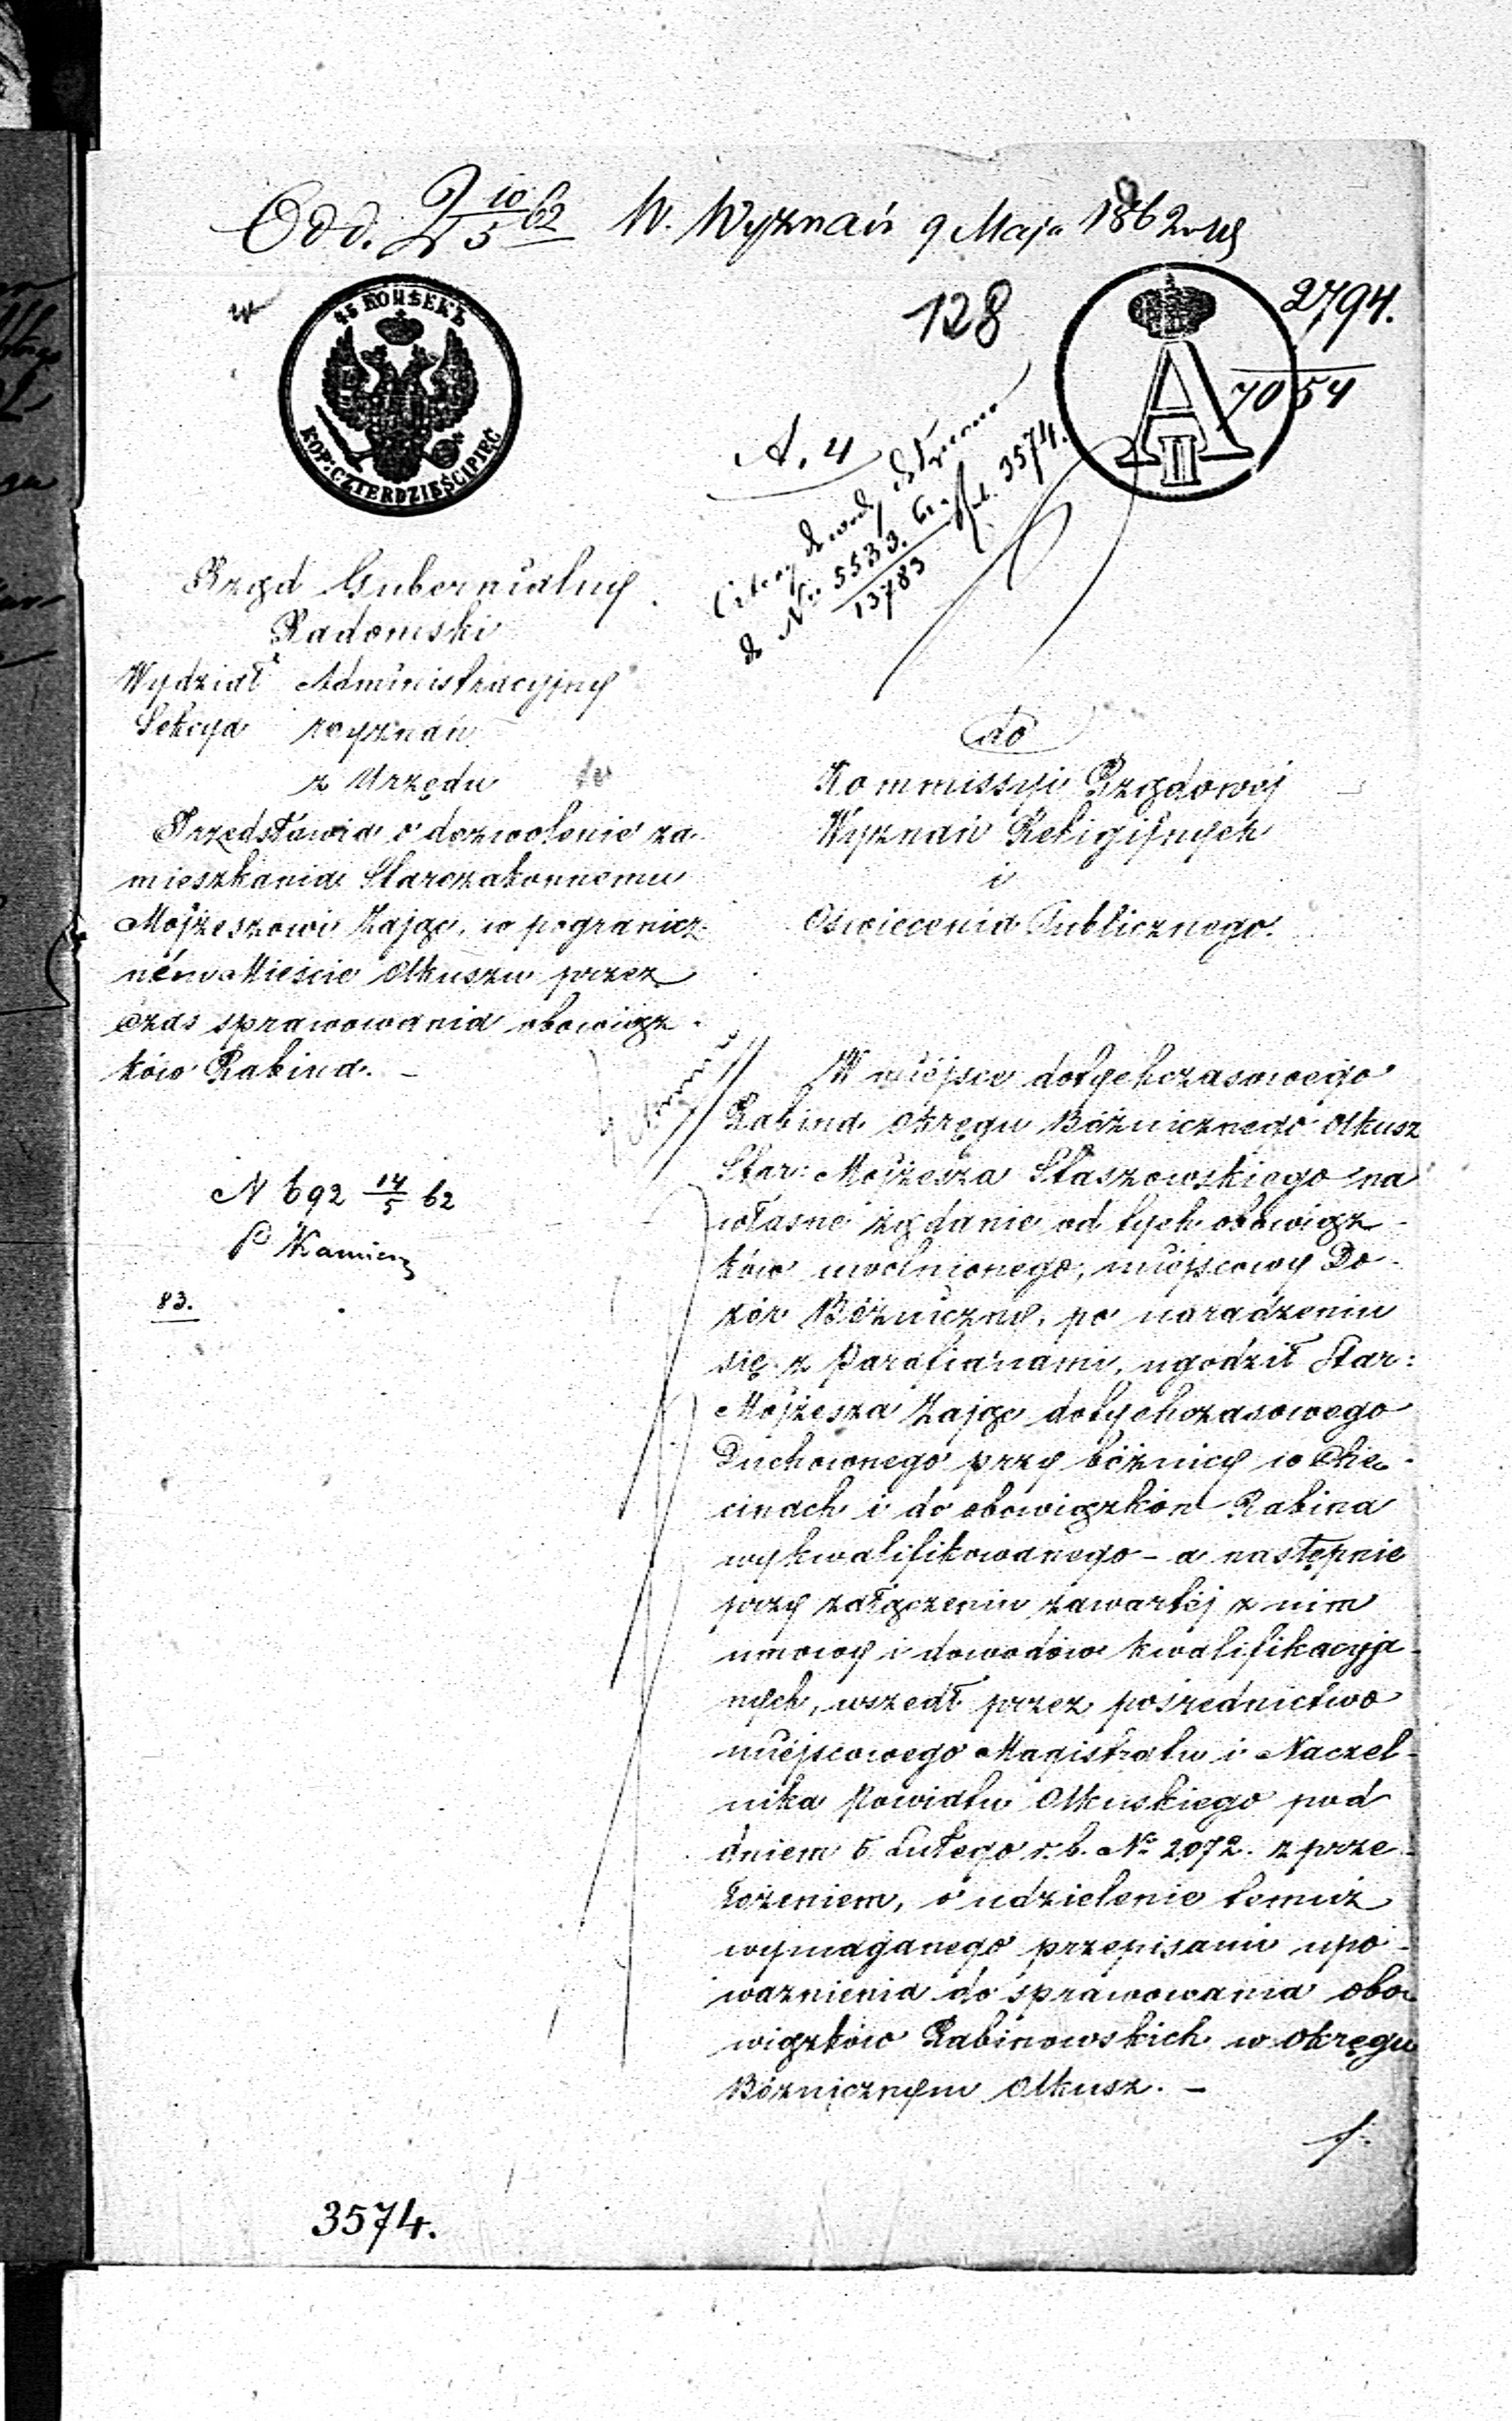 Odd. 2 10/5 62 W. Wyznań 9 Maja 1862
45 КОПѢЕКЪ
KOP: CZTERDZIEŚCI PIĘĆ
128
2794.
7054
A II
A. 4
do Nr 5533. 61.
13783
3574.
Rząd Gubernialny
Radomski
Wydział Administracyjny
Sekcyia wyznań
z Urzędu
Przedstawia o dozwolenie za-
mieszkania Starozakonnemu
Mojżeszowi Zając, w pogranicz-
ném Mieście Olkuszu przez
czas sprawowania obowiąz-
ków Rabina. -
N 692 14/5 62
P Kamien
83.
do
Kommissyi Rządowéj
Wyznań Religijnych
i
Oświecenia Publicznego.
W miéjsce dotychczasowego
Rabina okręgu Bóżnicznego Olkusz
Star: Mojżesza Staszowskiego na
własne żądanie od tych obowiąz-
ków uwolnionego, miéjscowy Do-
zór Bóżniczny, po naradzeniu
się z Parafianami, ugodził Star:
Mojżesza Zając dotychczasowego
Duchownego przy bóżnicy w Chę-
cinach i do obowiązków Rabina
wykwalifikowanego - a następnie
przy załączeniu zawartéj z nim
umowy i dowodów kwalifikacyj-
nych, wszedł przez pośrednictwo
miéjscowego Magistratu i Naczel-
nika Powiatu Olkuskiego pod
dniem 5 Lutego r. b. No 2072. z prze-
łożeniem, o udzielenie temuż
wymaganego przepisami upo-
ważnienia do sprawowania obo-
wiązków Rabinowskich w okręgu
Bóżnicznym Olkusz. -
3574.